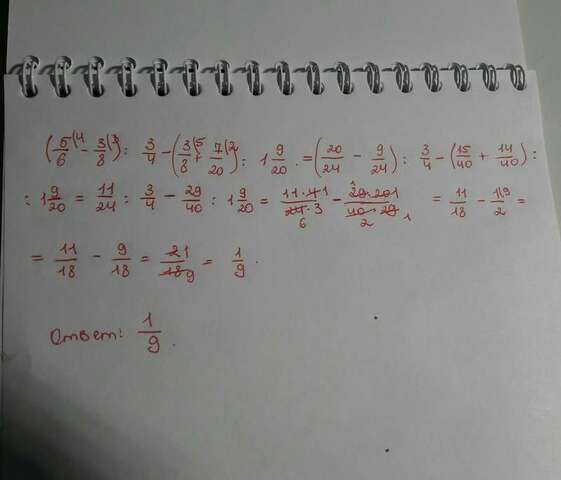 (5/6^(4 - 3/8^(3) : 3/4 - (3/8^(5 + 7/20^(2) : 1 9/20 = (20/24 - 9/24) : 3/4 - (15/40 + 14/40) :
: 1 9/20 = 11/24 : 3/4 - 29/40 : 1 9/20 = 11·4 1/24·3 6 - 1 29·20 1/40·29 2 1 = 11/18 - 1\9/2 =
= 11/18 - 9/18 = 2 1/18 9 = 1/9.
Ответ: 1/9.